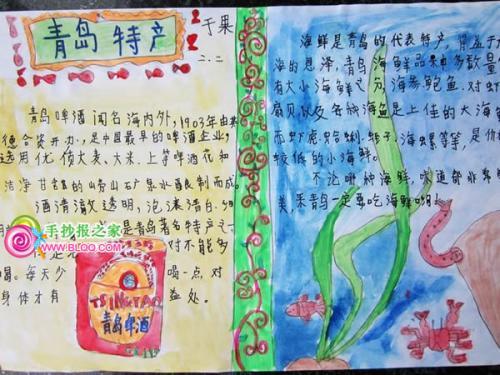 青岛 特产
于果
二.二
青岛啤酒闻名海内外,1903年由英
德合资开办,是中国最早的啤酒企业,
选用优质大麦、大米、上等啤酒花和
洁净甘甜的崂山矿泉水酿制而成
酒清清澈透明,泡沫洁白、细
是青岛著名特产之一
对不能多
喝。每天少
喝一点对
身体才有
益处。
TSINGTAO
青岛啤酒
海鲜是青岛的代表特产,
海的恩泽,青岛海鲜品种多数量
有大小海鲜之分,海参鲍鱼、对虾
扇贝以及各种海鱼是上佳的大海
而虾虎、蛤蜊、蛏子、海螺等等,是价
较低的小海鲜。
不论哪种海鲜,味道都非常
美,来青岛一定要吃海鲜哟!
手抄报之家
WWW.BLQQ.COM